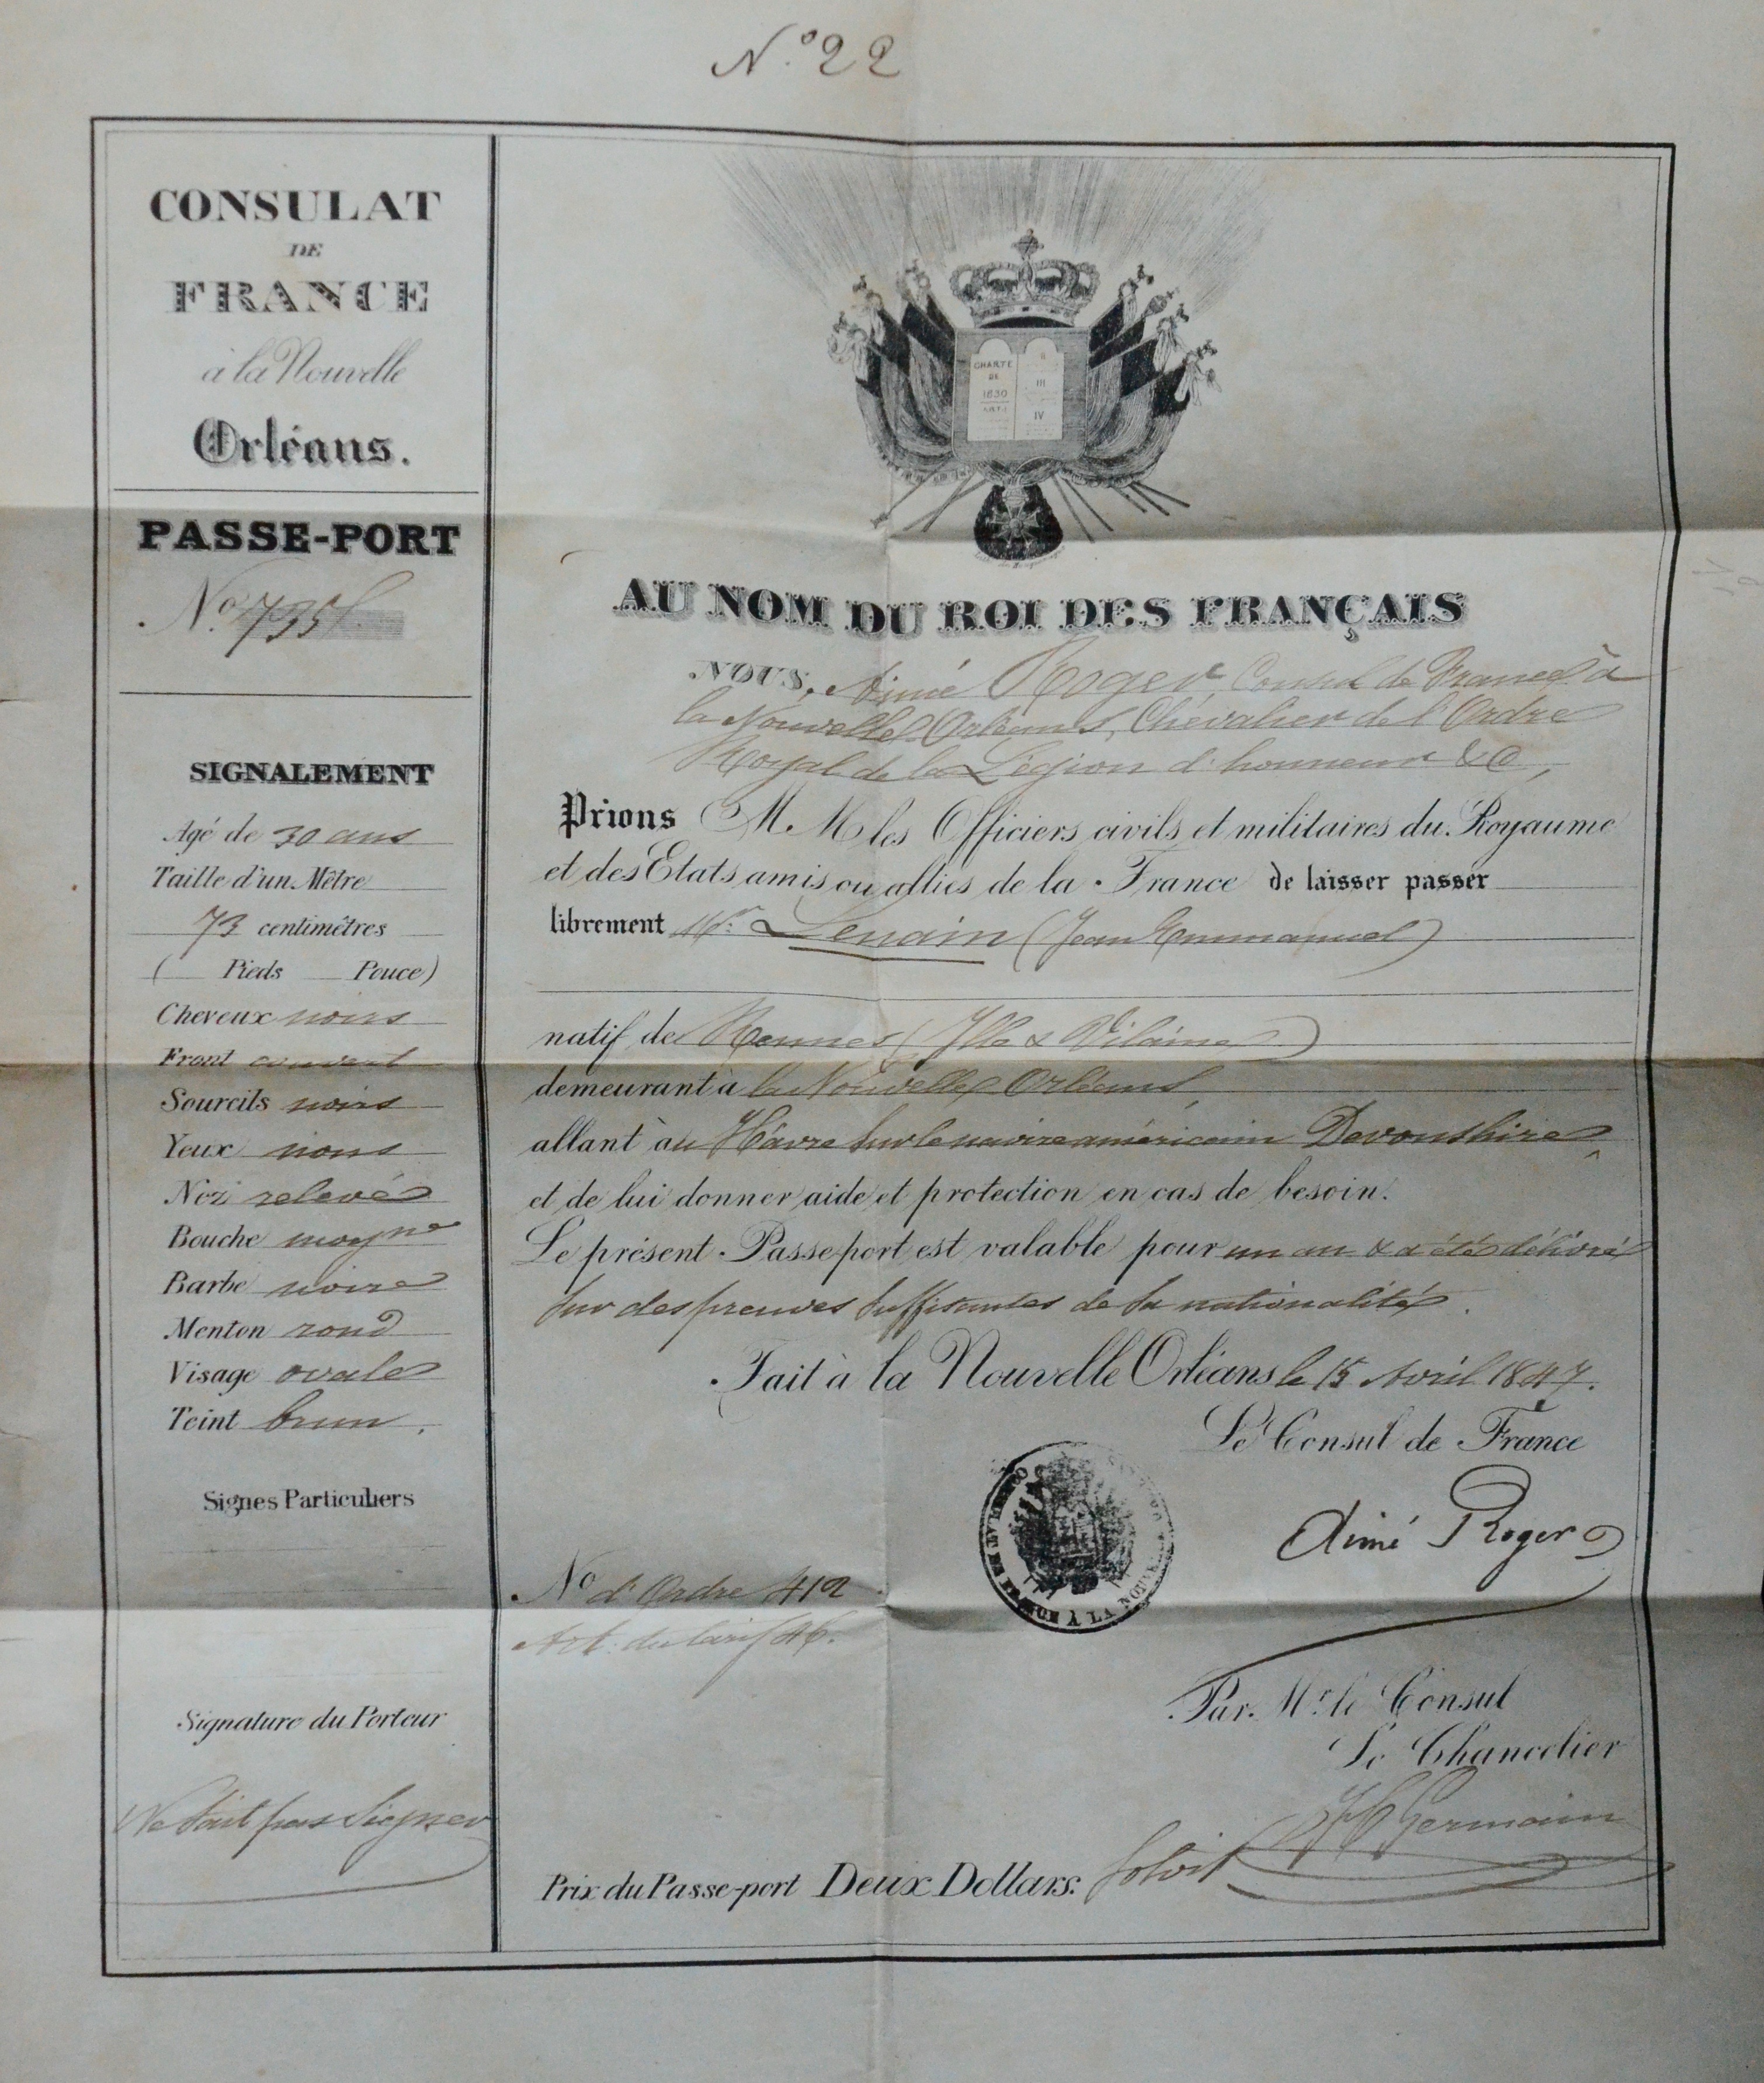 N.º 22
CONSULAT
DE
FRANCE
à la Nouvelle
Orléans.
PASSE-PORT
Nº
SIGNALEMENT
Agé de 30 ans
Taille d'un Mètre
73 centimètres
( Pieds Pouce)
Cheveux noirs
Front couvert
Sourcils noirs
Yeux noirs
Nez relevé
Bouche moyne
Barbe noire
Menton rond
Visage ovale
Teint brun.
Signes Particuliers
Signature du Porteur
Ne sait pas Signer
CHARTE
DE
1830
III
IV
AU NOM DU ROI DES FRANÇAIS
NOUS, Aimé Roger, Consul de France à
la Nouvelle Orléans, Chevalier de l'Ordre
Royal de la Légion d'honneur &c,
Prions M.M les Officiers civils et militaires du Royaume
et des Etats amis ou alliés de la France de laisser passer
librement Mr. Lenain (Jean Emmanuel)
natif de Rennes (Ille & Vilaine)
demeurant à la Nouvelle Orléans,
allant au Hâvre sur le navire américain Devonshire
et de lui donner aide et protection en cas de besoin.
Le présent Passe-port est valable pour un an & a été délivré
sur des preuves suffisantes de sa nationalité.
Fait à la Nouvelle Orléans le 15 Avril 1847.
Le Consul de France
Aimé Roger
CONSULAT DE FRANCE À LA NOUV
Nº d'Ordre 412
Art. du tarif 46.
Par Mr. le Consul
Le Chancelier
Germain
Prix du Passe-port Deux Dollars.